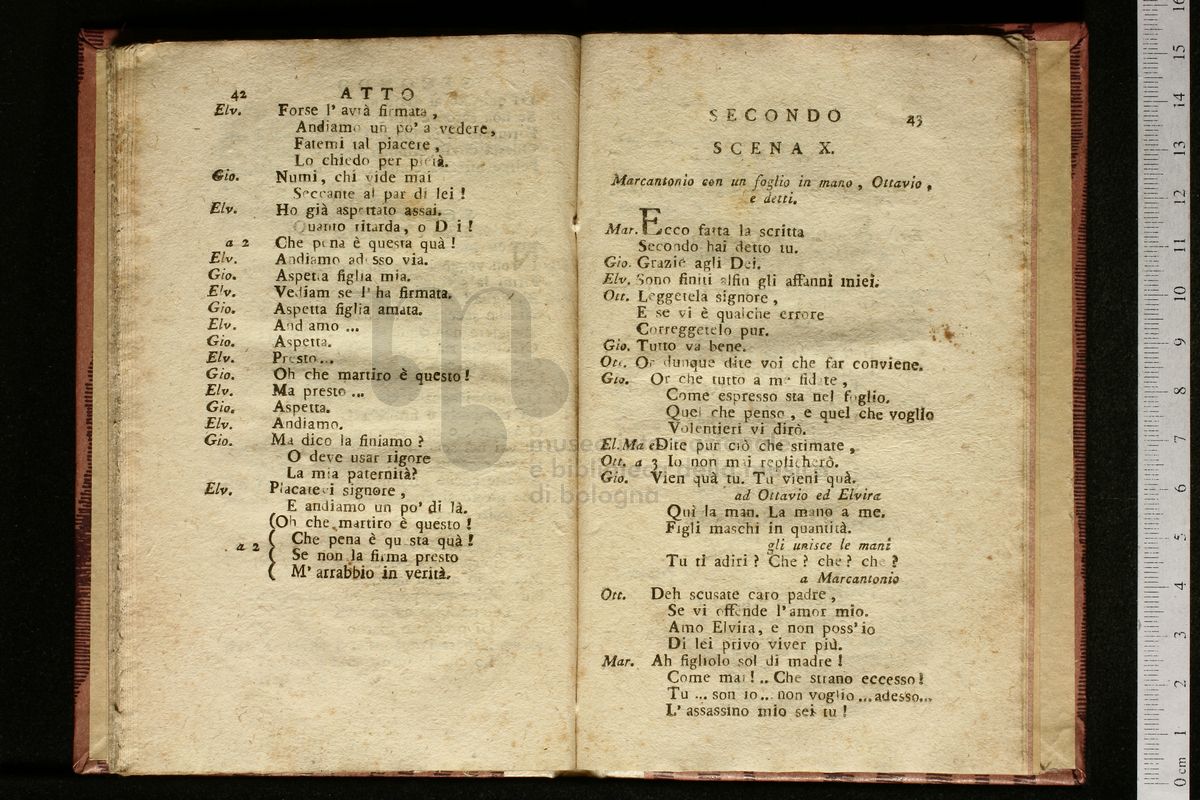 42 ATTO
Elv. Forse l' avrà firmata ,
Andiamo un po' a vedere,
Fatemi tal piacere ,
Lo chiedo per pietà.
Gio. Numi, chi vide mai
Seccante al par di lei !
Elv. Ho già aspettato assai.
Quanto ritarda, o D i !
a 2 Che pena è questa quà !
Elv. Andiamo adesso via.
Gio. Aspetta figlia mia.
Elv. Vediam se l' ha firmata.
Gio. Aspetta figlia amata.
Elv. And amo ...
Gio. Aspetta.
Elv. Presto...
Gio. Oh che martiro è questo !
Elv. Ma presto ...
Gio. Aspetta.
Elv. Andiamo.
Gio. Ma dico la finiamo ?
O deve usar rigore
La mia paternità?
Elv. Placatevi signore ,
E andiamo un po' di là.
(Oh che martiro è questo !
( Che pena è qu sta quà !
a 2
( Se non la firma presto
( M' arrabbio in verità.
SECONDO 43
SCENA X.
Marcantonio con un foglio in mano , Ottavio ,
e detti.
Mar. Ecco fatta la scritta
Secondo hai detto tu.
Gio. Grazie agli Dei.
Elv. Sono finiti alfin gli affanni miei.
Ott. Leggetela signore ,
E se vi è qualche errore
Correggetelo pur.
Gio. Tutto va bene.
Ott. Or dunque dite voi che far conviene.
Gio. Or che tutto a me fidate ,
Come espresso sta nel foglio.
Quel che penso , e quel che voglio
Volentieri vi dirò.
El. Ma e Dite pur ciò che stimate ,
Ott. a 3 Io non mai replicherò.
Gio. Vien quà tu. Tu vieni quà.
ad Ottavio ed Elvira
Quì la man. La mano a me.
Figli maschi in quantità.
gli unisce le mani
Tu ti adiri ? Che ? che ? che ?
a Marcantonio
Ott. Deh scusate caro padre ,
Se vi offende l'amor mio.
Amo Elvira, e non poss' io
Di lei privo viver più.
Mar. Ah figliolo sol di madre !
Come mai ! .. Che strano eccesso !
Tu ... son io ... non voglio ... adesso...
L' assassino mio sei tu !
di bologna
0 cm 1 2 3 4 5 6 7 8 9 10 11 12 13 14 15 16